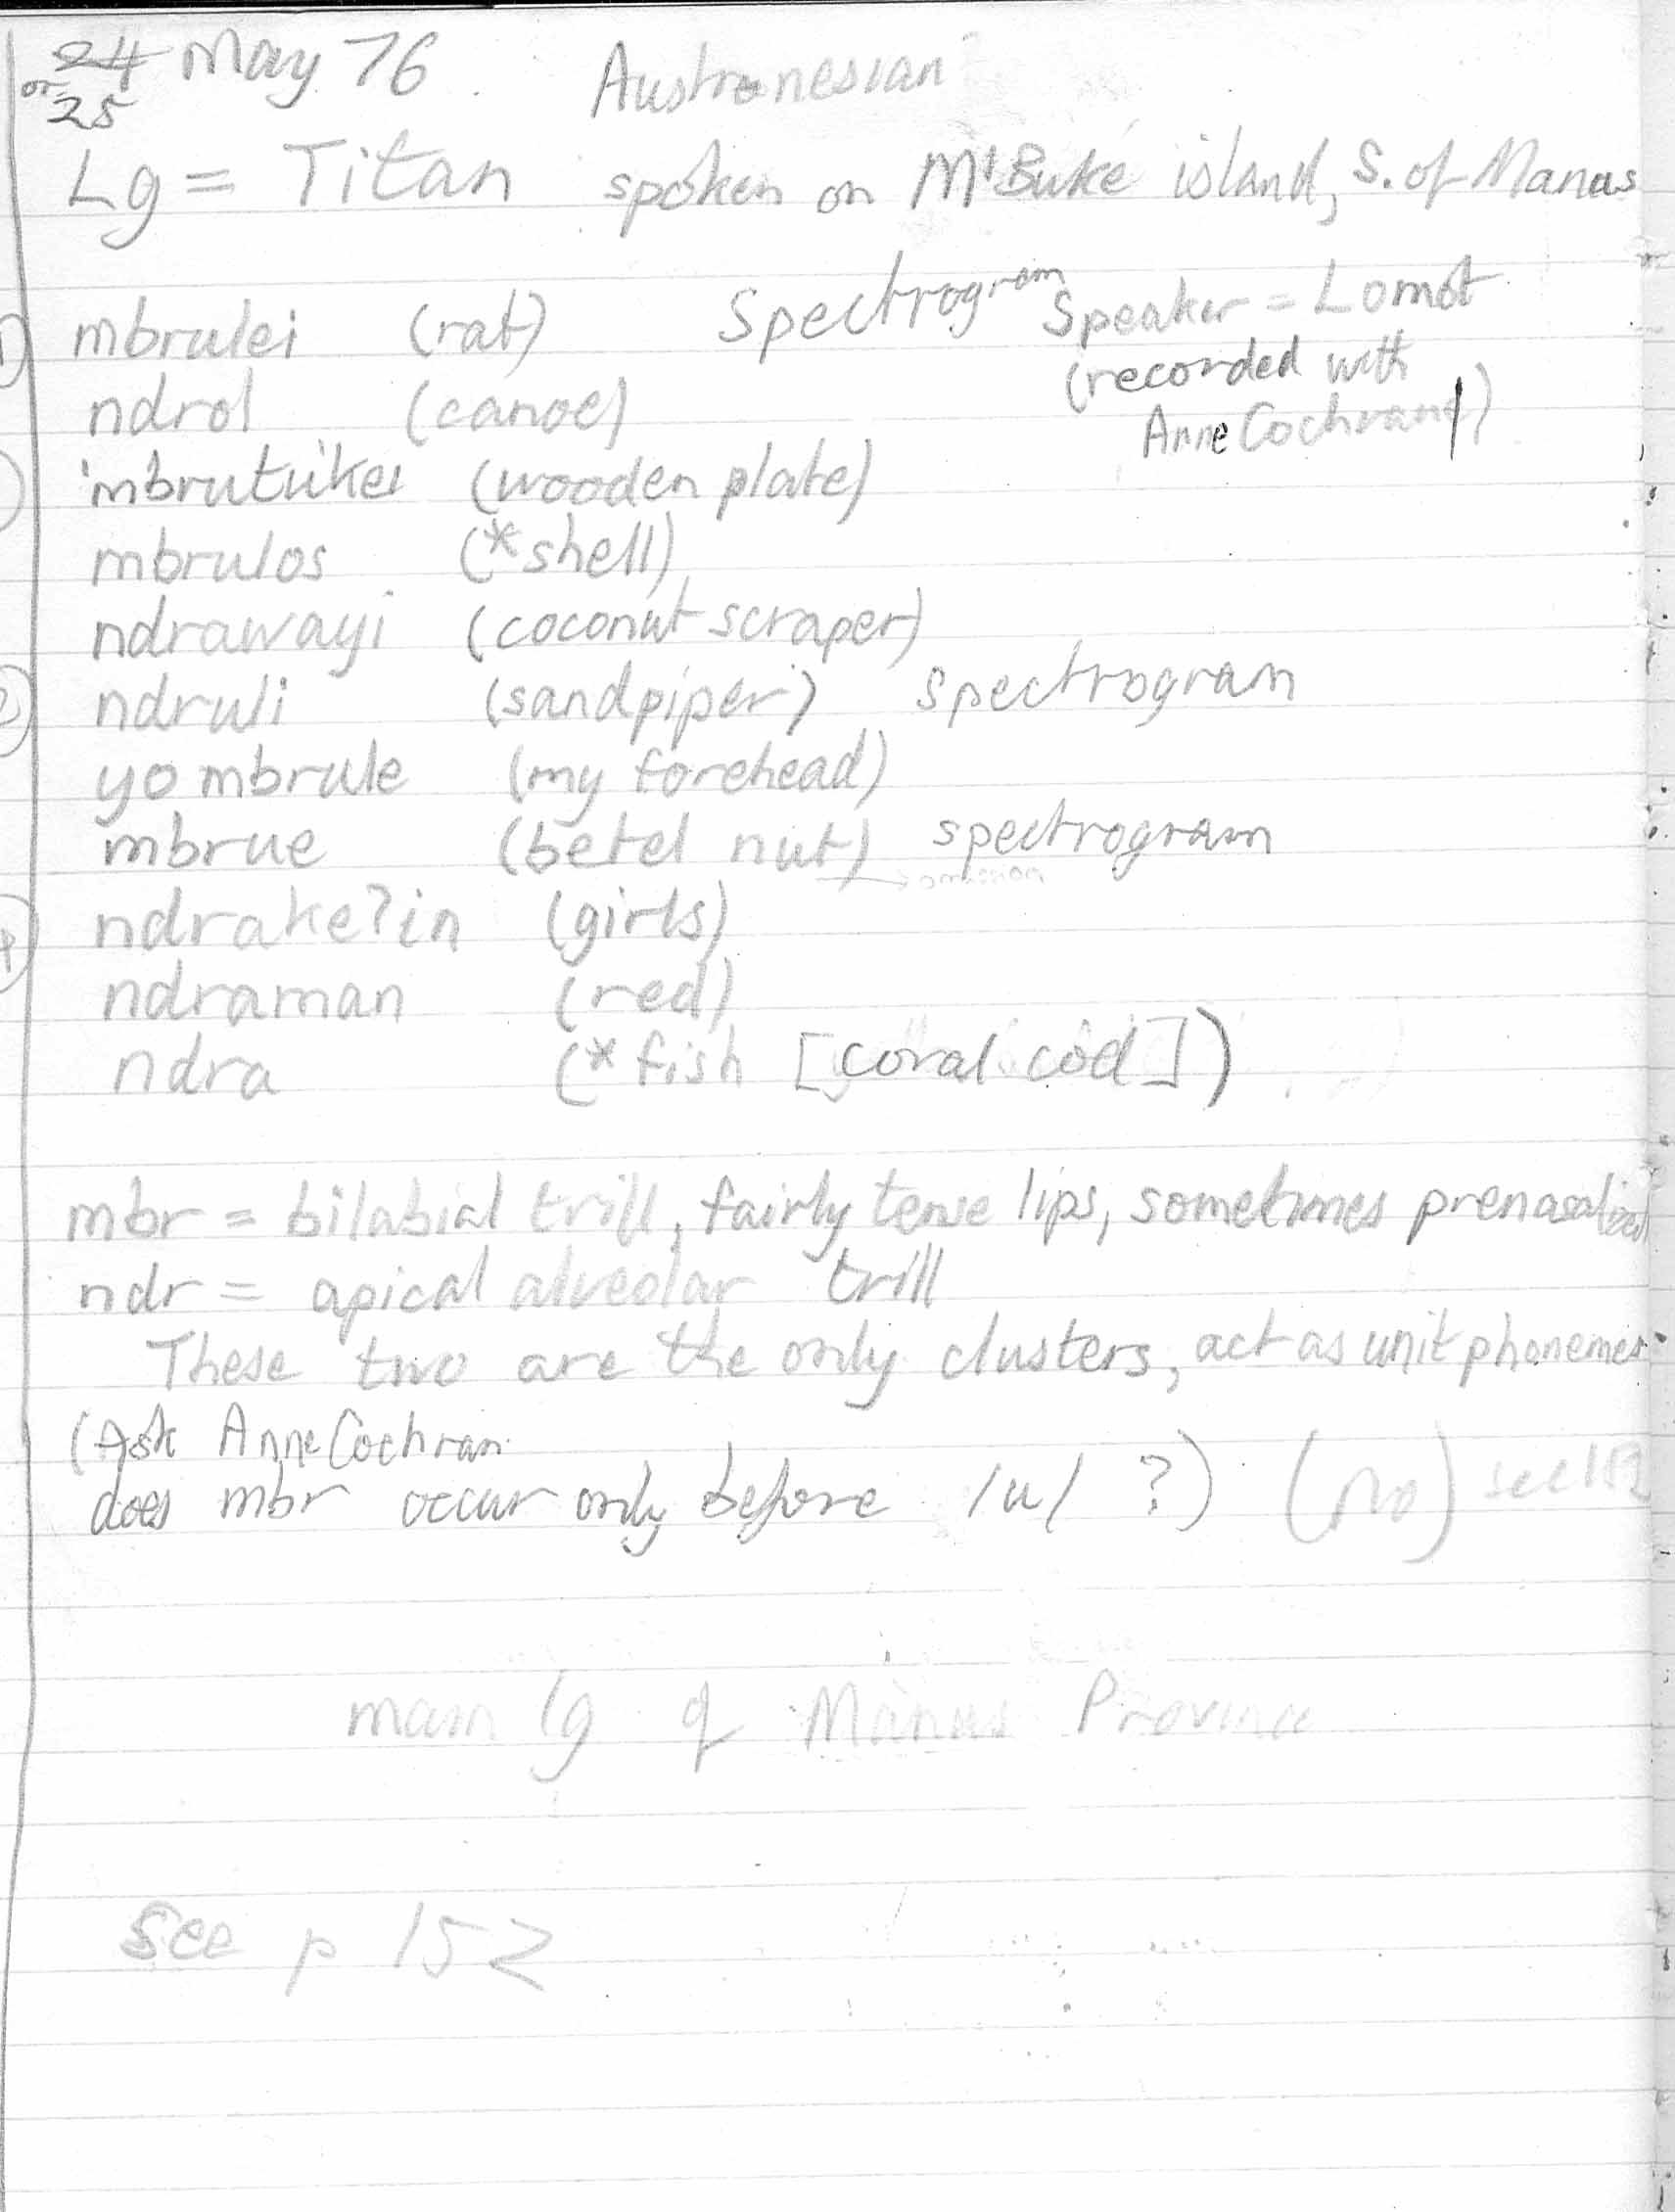 24 May 76 Austronesian
or 25
Lg = Titan spoken on M'Buke island, S. of Manus
1) mbrulei (rat) Spectrogram Speaker = Lomot
(recorded with
ndrol (canoe) Anne Cochran)
mbrutukei (wooden plate)
mbrulos (*shell)
ndrawayi (coconut scraper)
2) ndruli (sandpiper) spectrogram
yo mbrule (my forehead)
mbrue (betel nut) spectrogram
ndrake?in (girls)
ndraman (red)
ndra (*fish [coral cod])
mbr = bilabial trill, fairly tense lips, sometimes prenasalized
ndr = apical alveolar trill
These two are the only clusters, act as unit phonemes
(Ask Anne Cochran
does mbr occur only before /u/ ?) (no) see 152
main lg of Manus Province
See p 152